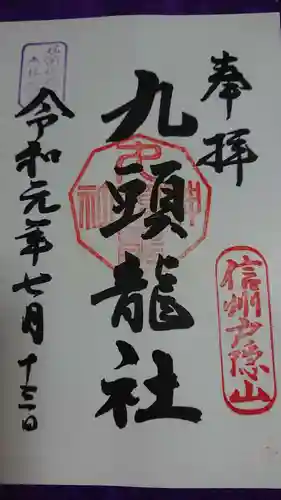 奉拝
信州戸隠山
九頭龍社
令和元年七月十三日